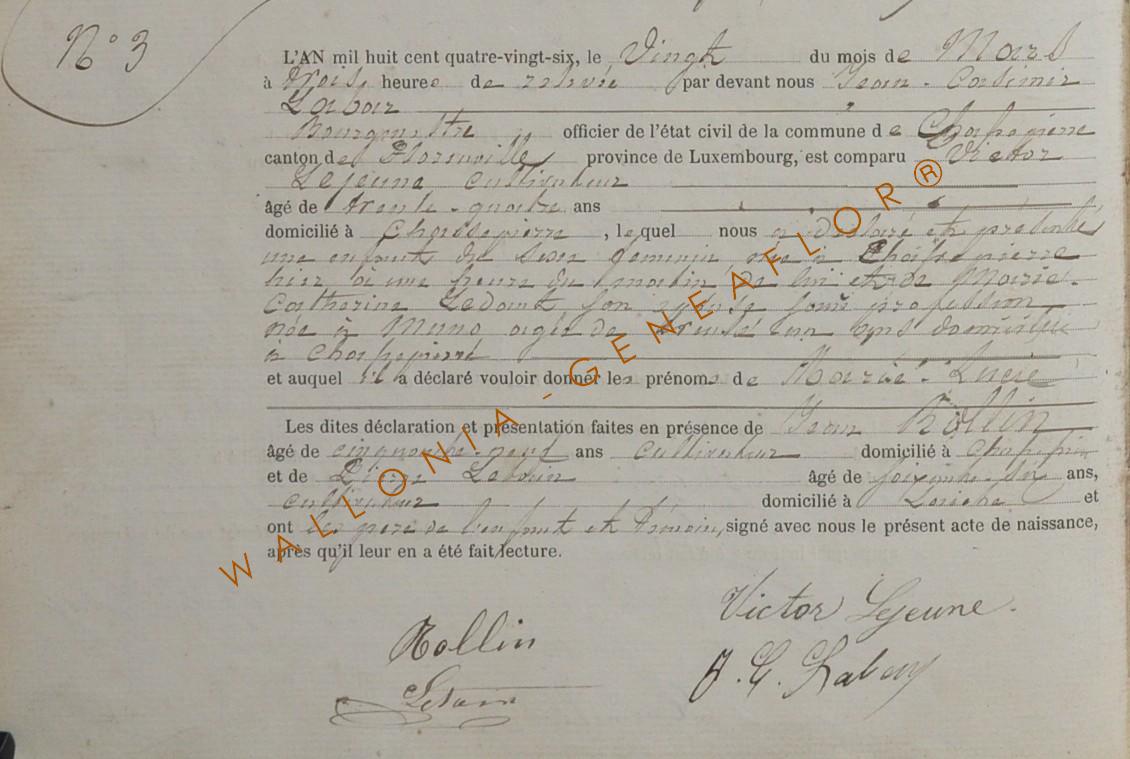 N° 3
L'AN mil huit cent quatre-vingt-six, le Vingt du mois de Mars
à trois heures de relevée par devant nous Jean-Casimir
Labar
Bourgmestre officier de l'état civil de la commune de Chassepierre
canton de Florenville province de Luxembourg, est comparu Victor
Lejeune cultivateur
âgé de trente-quatre ans
domicilié à Chassepierre, lequel nous a déclaré et présenté
une enfant du sexe féminin, née à Chassepierre
hier à une heure du matin de lui et de Marie
Catherine Ledant son épouse sans profession
née à Muno agée de trente un ans domiciliée
à Chassepierre
et auquel il a déclaré vouloir donner les prénoms de Marie-Lucie
Les dites déclaration et présentation faites en présence de Jean Rollin
âgé de cinquante-neuf ans cultivateur domicilié à Chassepierre
et de âgé de ans,
cultivateur domicilié à et
ont les père de l'enfant et témoins, signé avec nous le présent acte de naissance,
après qu'il leur en a été fait lecture.
Victor Lejeune.
Rollin
WALLONIA - GENEAFLOR®